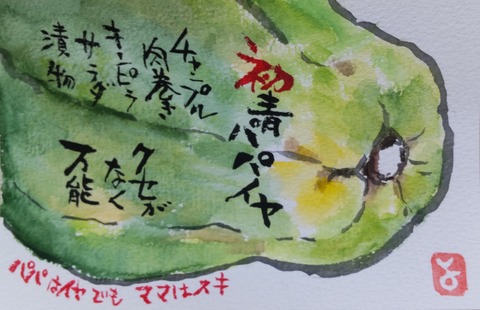 初青パパイヤ
チャンプル
肉巻き
キンピラ
サラダ
漬物
クセが
なく
万能
パパはイヤでも ママはスキ
と